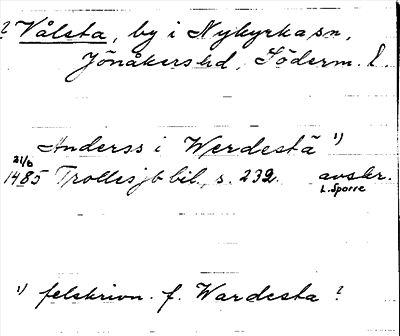 ? Vålsta, by i Nykyrka sn,
Jönåkers hd, Söderm. l.
Anderss i Werdestä 1)
21/6
1485 Trolles jb bil., s. 232. avskr.
L. Sporre
1) felskrivn. f. Wardesta ?